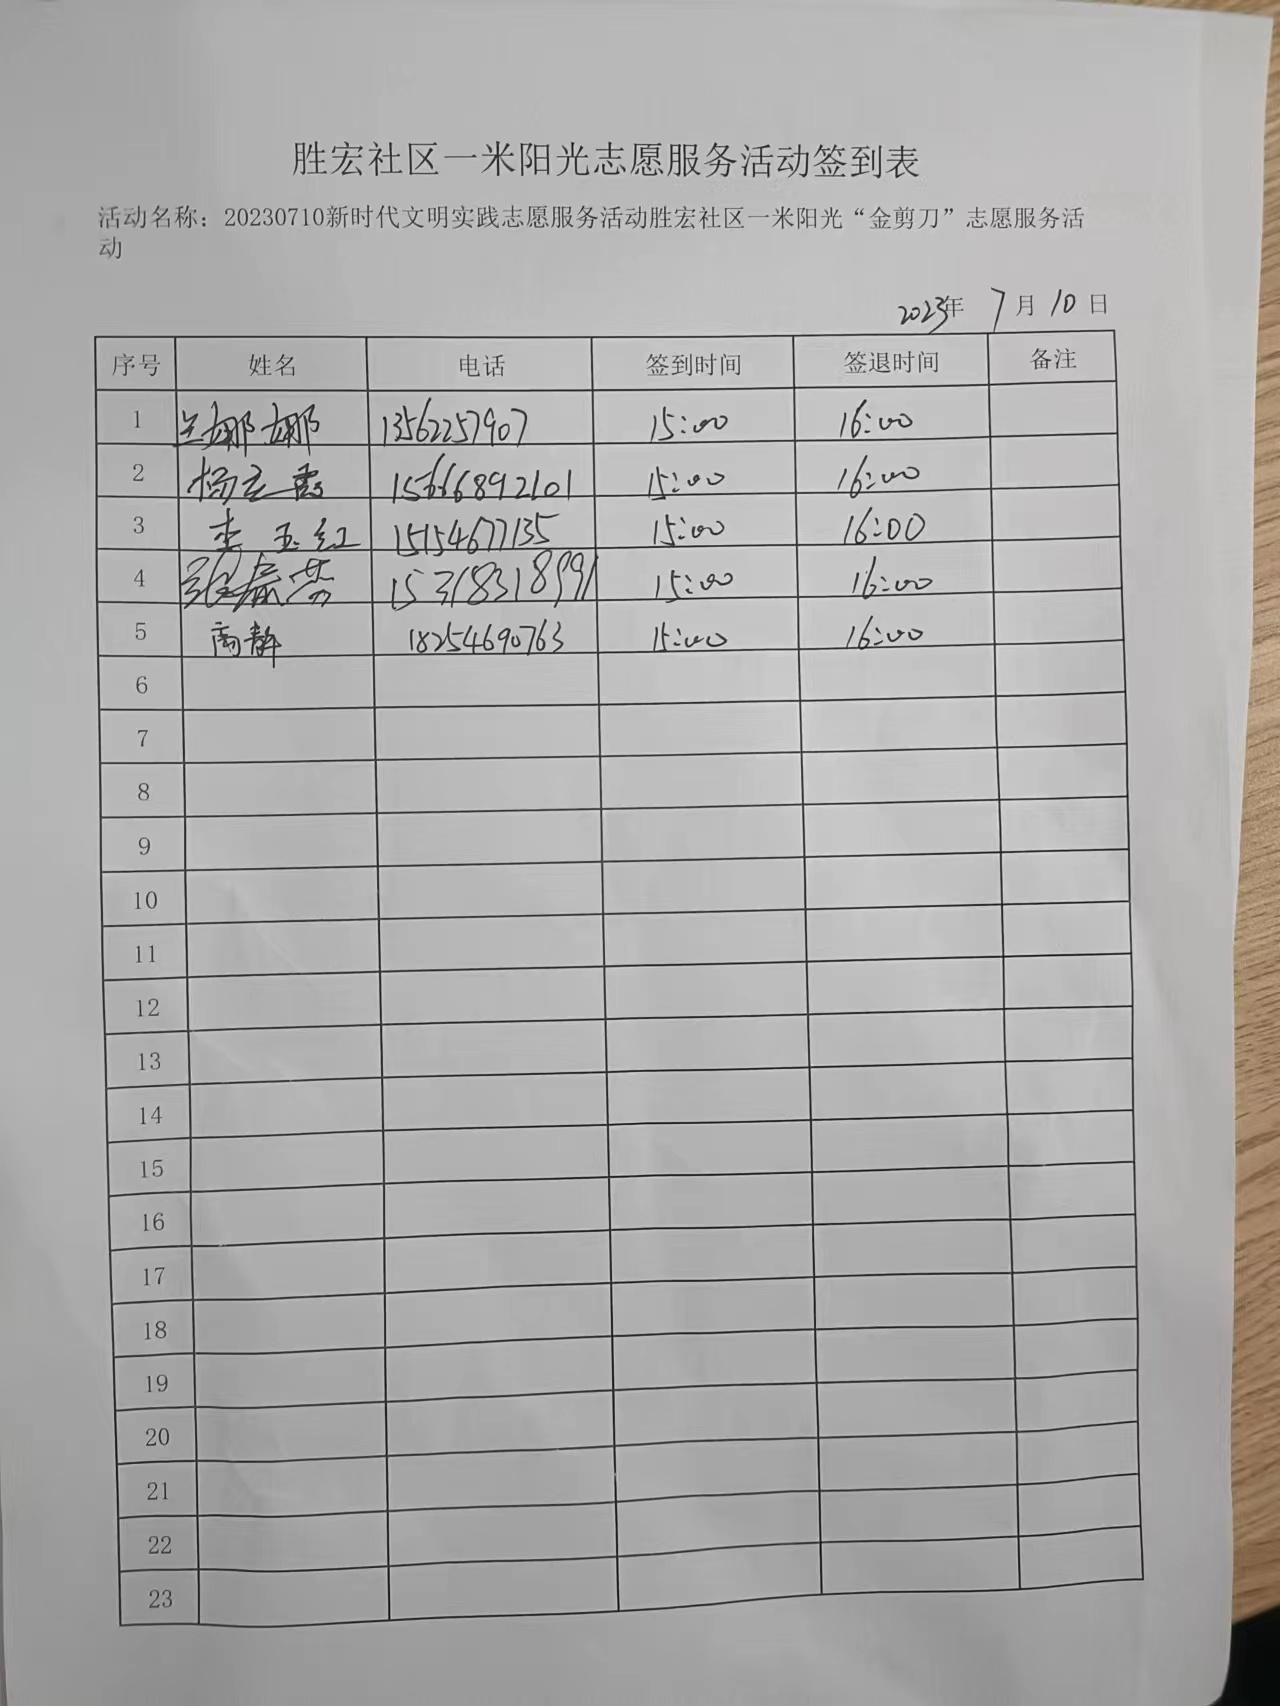 胜宏社区一米阳光志愿服务活动签到表
活动名称：20230710新时代文明实践志愿服务活动胜宏社区一米阳光“金剪刀”志愿服务活
动
2023年 7月 10日
序号 姓名 电话 签到时间 签退时间 备注
1 兰娜娜 13562257907 15:00 16:00
2 杨立霞 15666892101 15:00 16:00
3 李玉红 15154677135 15:00 16:00
4 张春芳 15:00 16:00
5 高静 18254690763 15:00 16:00
6
7
8
9
10
11
12
13
14
15
16
17
18
19
20
21
22
23